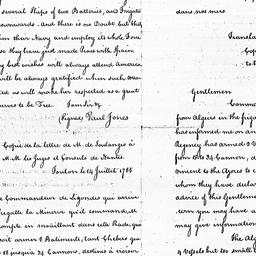 several Ships of two Batteries, and Frigates
downwards. And there is no Doubt but that
their Navy and employ its whole Force
they have just made Peace with Spain
my best wishes will always attend America
will be always gratified when such
as will make her respected as a great
to be Free. I am Sir &c
(Signed) Paul Jones
Copie de la lettre de M. de Soulanges à
M. M. les Juges et Consuls de Nantes
Toulon le 14 Juillet 1785
Commandeur de Ligondès qui arrive
frégatte la Minerve qu'il commande, M
en mouillant dans cette Rade, que
arme 8 Batiments, tant Chebecs que
jusqu'à 34 Cannons, destinés à croiser
dans nos mers.
Transla
Cop
to
Gentlemen
Comma
from Algiers in the frig
has informed me on an
Regency has armed 8 V
from 18 to 34 Cannon, d
the Azores to
whom they have declar
advice of this Gentlemen
you may have a
may give information
The Alg
4 Vessels but too small